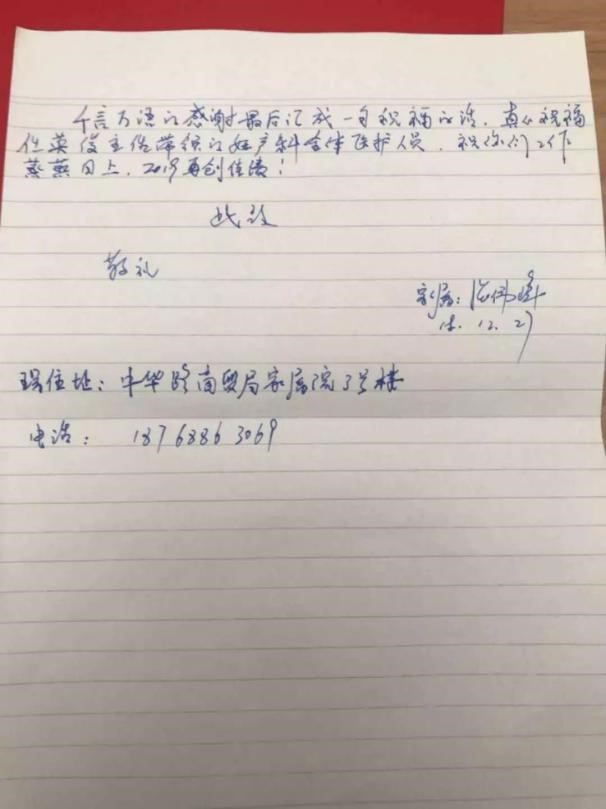 千言万语的感谢最后汇成一句祝福的话,真心祝福
任英俊主任带领的妇产科全体医护人员,祝你们工作
蒸蒸日上,2019再创佳绩!
此致
敬礼
家属:
18.12.27
现住址:中华路商贸局家属院3号楼
电话: 18768863069